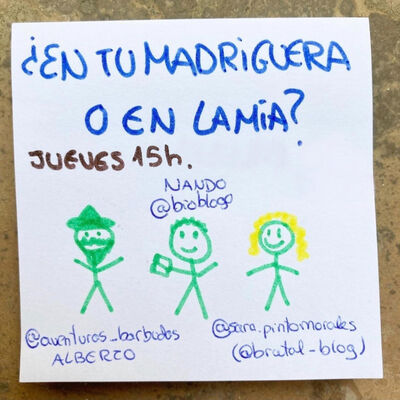 ¿EN TU MADRiGUERA
O EN LA MÍA?
JUEVES 15h.
NANDO
@biobloge
@aventuras_barbudas
ALBERTO
@sara.pintomorales
(@brutal_blog)